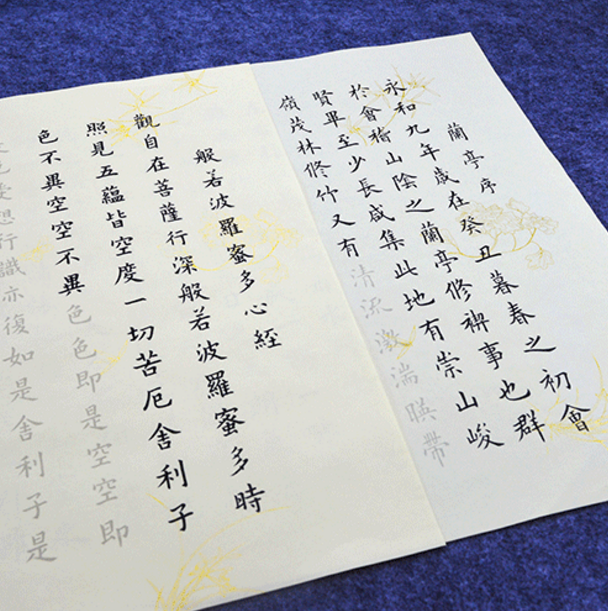 蘭亭序
永和九年歲在癸丑暮春之初會
於會稽山陰之蘭亭修禊事也群
賢畢至少長咸集此地有崇山峻
嶺茂林修竹又有清流激湍暎帶
般若波羅蜜多心經
觀自在菩薩行深般若波羅蜜多時
照見五蘊皆空度一切苦厄舍利子
色不異空空不異色色即是空空即
色受想行識亦復如是舍利子是